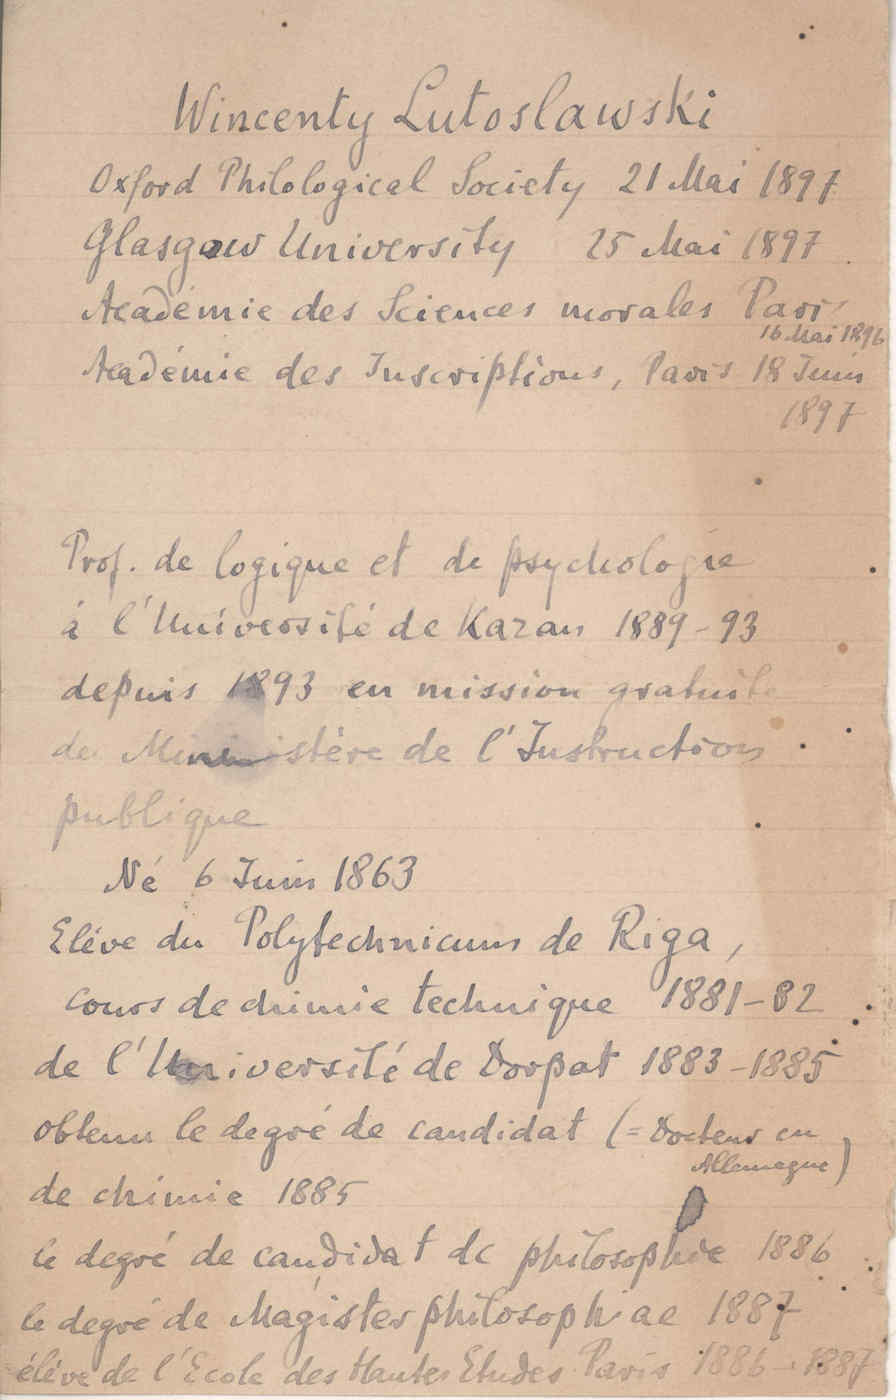 Wincenty Lutoslawski
Oxford Philological Society 21 Mai 1897
Glasgow University 25 Mai 1897
Académie des Sciences morales Paris
16 Mai 1896
Académie des Inscriptions, Paris 18 Juin
1897
Prof. de logique et de psychologie
à l'Université de Kazan 1889-93
depuis 1893 en mission gratuite
du Ministère de l'Instruction
publique
Né 6 Juin 1863
Elève du Polytechnicum de Riga,
cours de chimie technique 1881-82
de l'Université de Dorpat 1883-1885
obtenu le degré de candidat (= Docteur en
Allemagne)
de chimie 1885
le degré de candidat de philosophie 1886
le degré de Magister philosophiae 1887
élève de l'Ecole des Hautes Etudes Paris 1886-1887